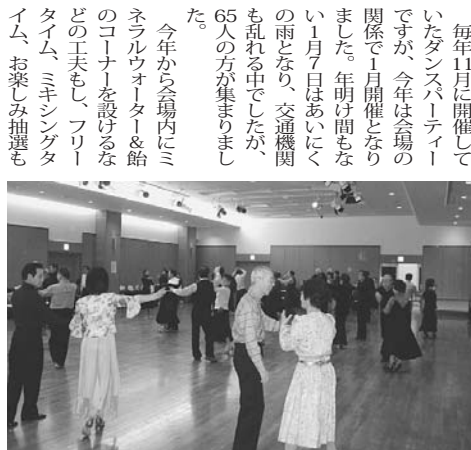 毎年11月に開催して
いたダンスパーティー
ですが、今年は会場の
関係で1月開催となり
ました。年明け間もな
い1月7日はあいにく
の雨となり、交通機関
も乱れる中でしたが、
65人の方が集まりまし
た。
　今年から会場内にミ
ネラルウォーター&飴
のコーナーを設けるな
どの工夫もし、フリー
タイム、ミキシングタ
イム、お楽しみ抽選も